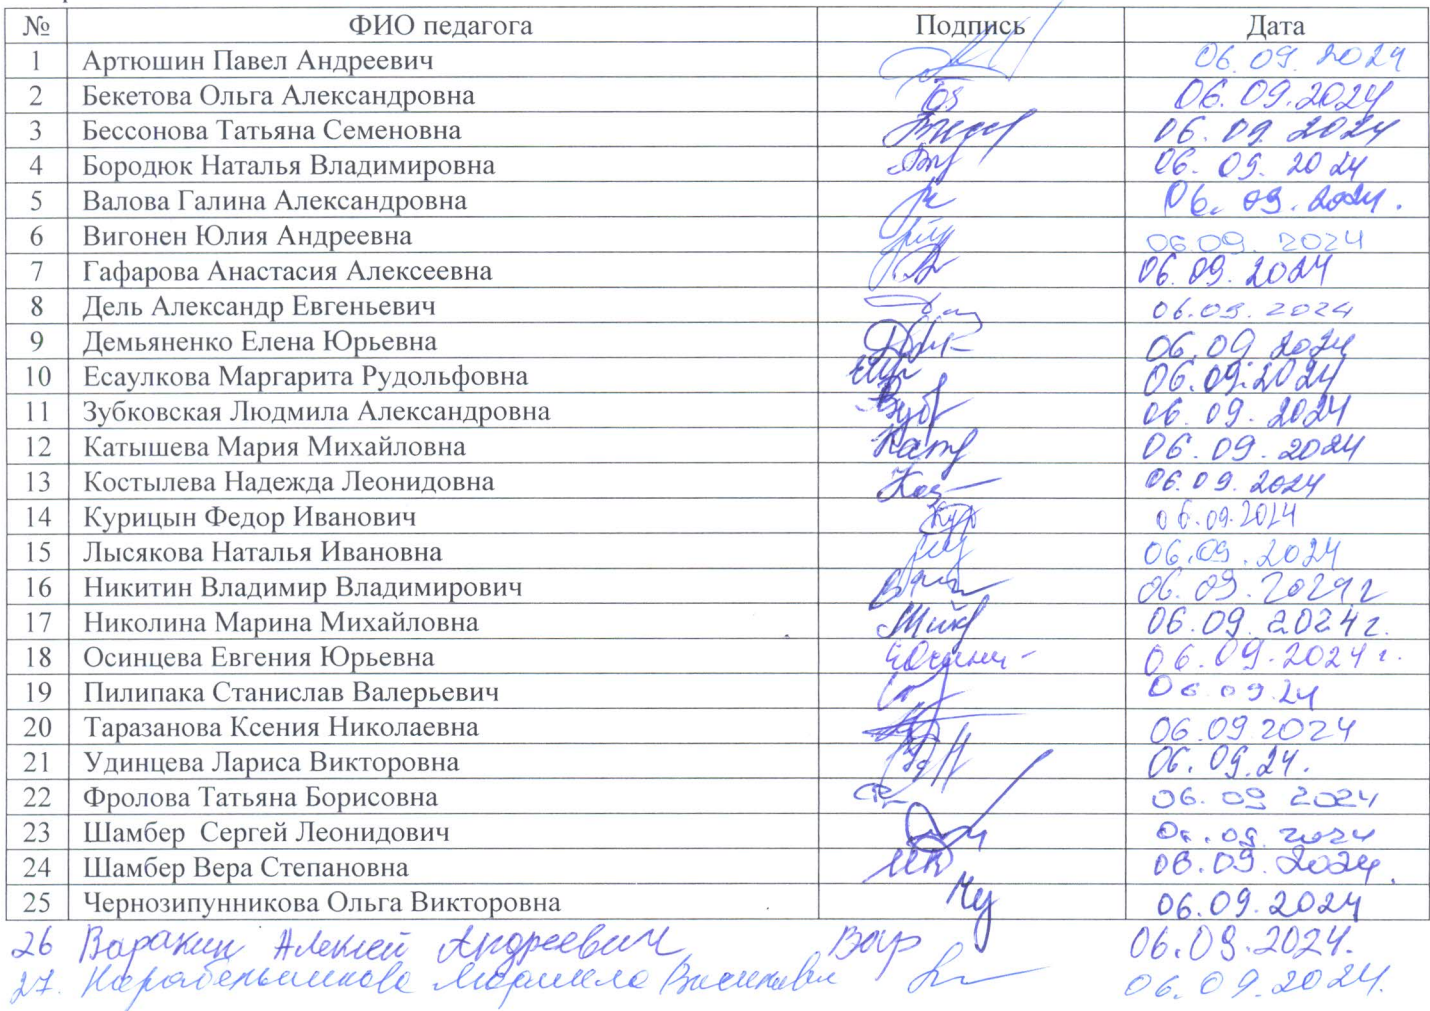 № ФИО педагога Подпись Дата
1 Артюшин Павел Андреевич 06.09.2024
2 Бекетова Ольга Александровна 06.09.2024
3 Бессонова Татьяна Семеновна 06.09.2024
4 Бородюк Наталья Владимировна 06.09.2024
5 Валова Галина Александровна 06.09.2024.
6 Вигонен Юлия Андреевна 06.09.2024
7 Гафарова Анастасия Алексеевна 06.09.2024
8 Дель Александр Евгеньевич 06.09.2024
9 Демьяненко Елена Юрьевна 06.09.2024
10 Есаулкова Маргарита Рудольфовна 06.09.2024
11 Зубковская Людмила Александровна 06.09.2024
12 Катышева Мария Михайловна 06.09.2024
13 Костылева Надежда Леонидовна 06.09.2024
14 Курицын Федор Иванович 06.09.2024
15 Лысякова Наталья Ивановна 06.09.2024
16 Никитин Владимир Владимирович 06.09.2024г
17 Николина Марина Михайловна 06.09.2024г.
18 Осинцева Евгения Юрьевна 06.09.2024г.
19 Пилипака Станислав Валерьевич 06.09.24
20 Таразанова Ксения Николаевна 06.09.2024
21 Удинцева Лариса Викторовна 06.09.24.
22 Фролова Татьяна Борисовна 06.09.2024
23 Шамбер Сергей Леонидович 06.09.2024
24 Шамбер Вера Степановна 06.09.2024.
25 Чернозипунникова Ольга Викторовна 06.09.2024
26 Варакин Алексей Андреевич Вар 06.09.2024.
27. Людмила 06.09.2024.